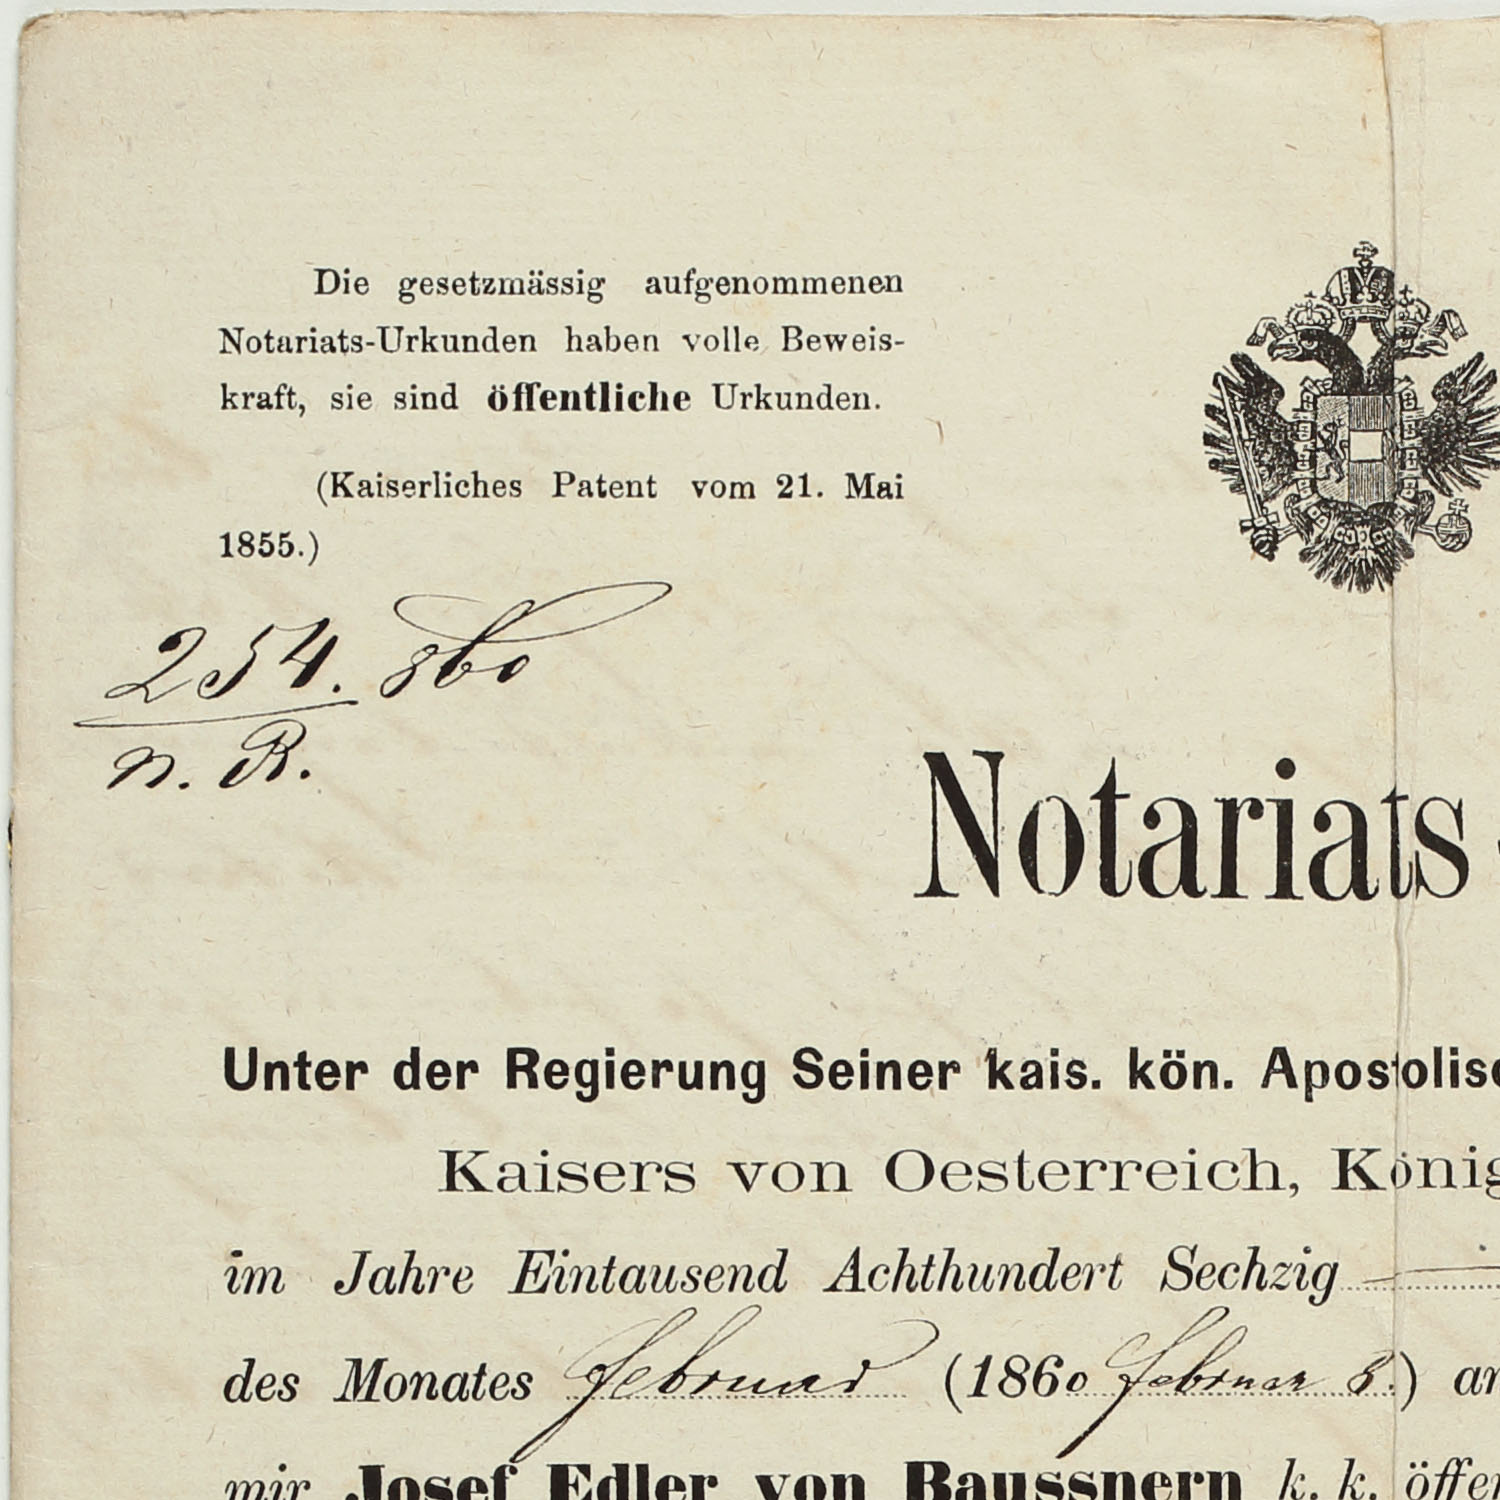 Die gesetzmässig aufgenommenen
Notariats-Urkunden haben volle Beweis-
kraft, sie sind öffentliche Urkunden.
(Kaiserliches Patent vom 21. Mai
1855.)
254. 860
n. R.
Notariats
Unter der Regierung Seiner kais. kön. Apostolisc
Kaisers von Oesterreich, König
im Jahre Eintausend Achthundert Sechzig
des Monates Februar (1860 Februar 8.) an
mir Josef Edler von Baussnern k. k. öffen